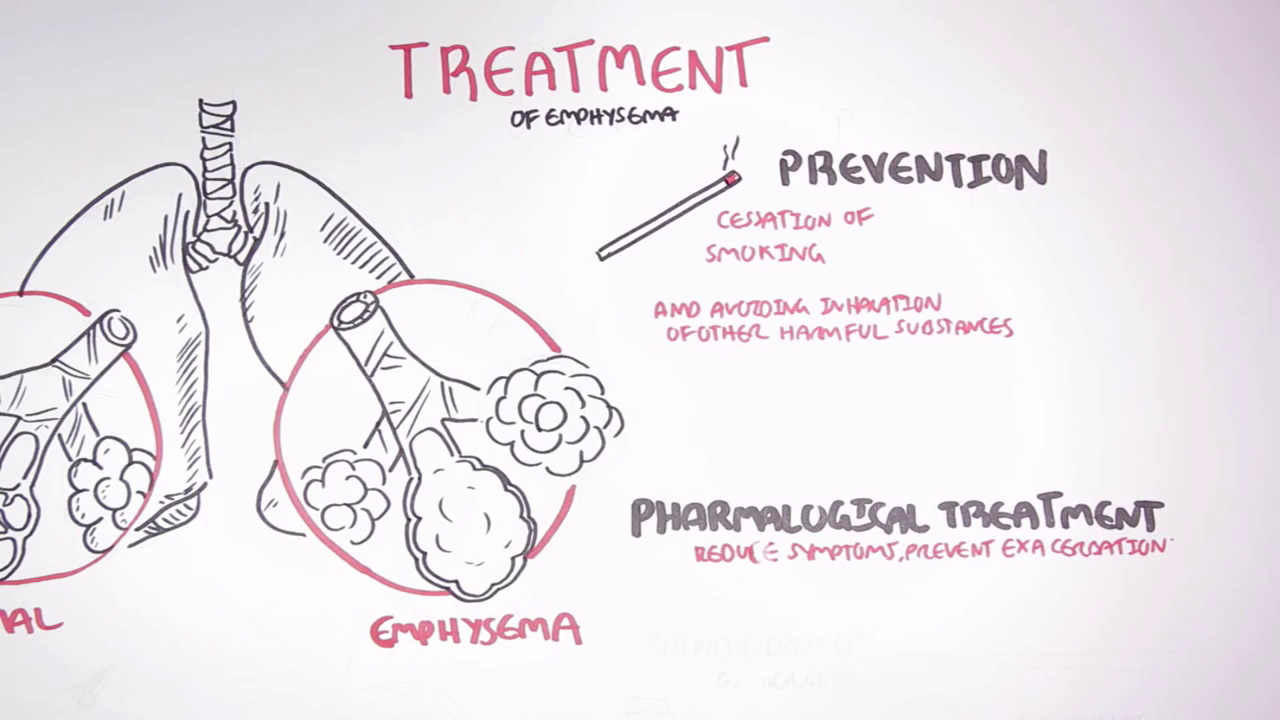 TREATMENT
OF EMPHYSEMA
PREVENTION
CESSATION OF
SMOKING
AND AVOIDING INHALATION
OF OTHER HARMFUL SUBSTANCES
PHARMALOGICAL TREATMENT
REDUCE SYMPTOMS, PREVENT EXACERBATION
EMPHYSEMA
MAL